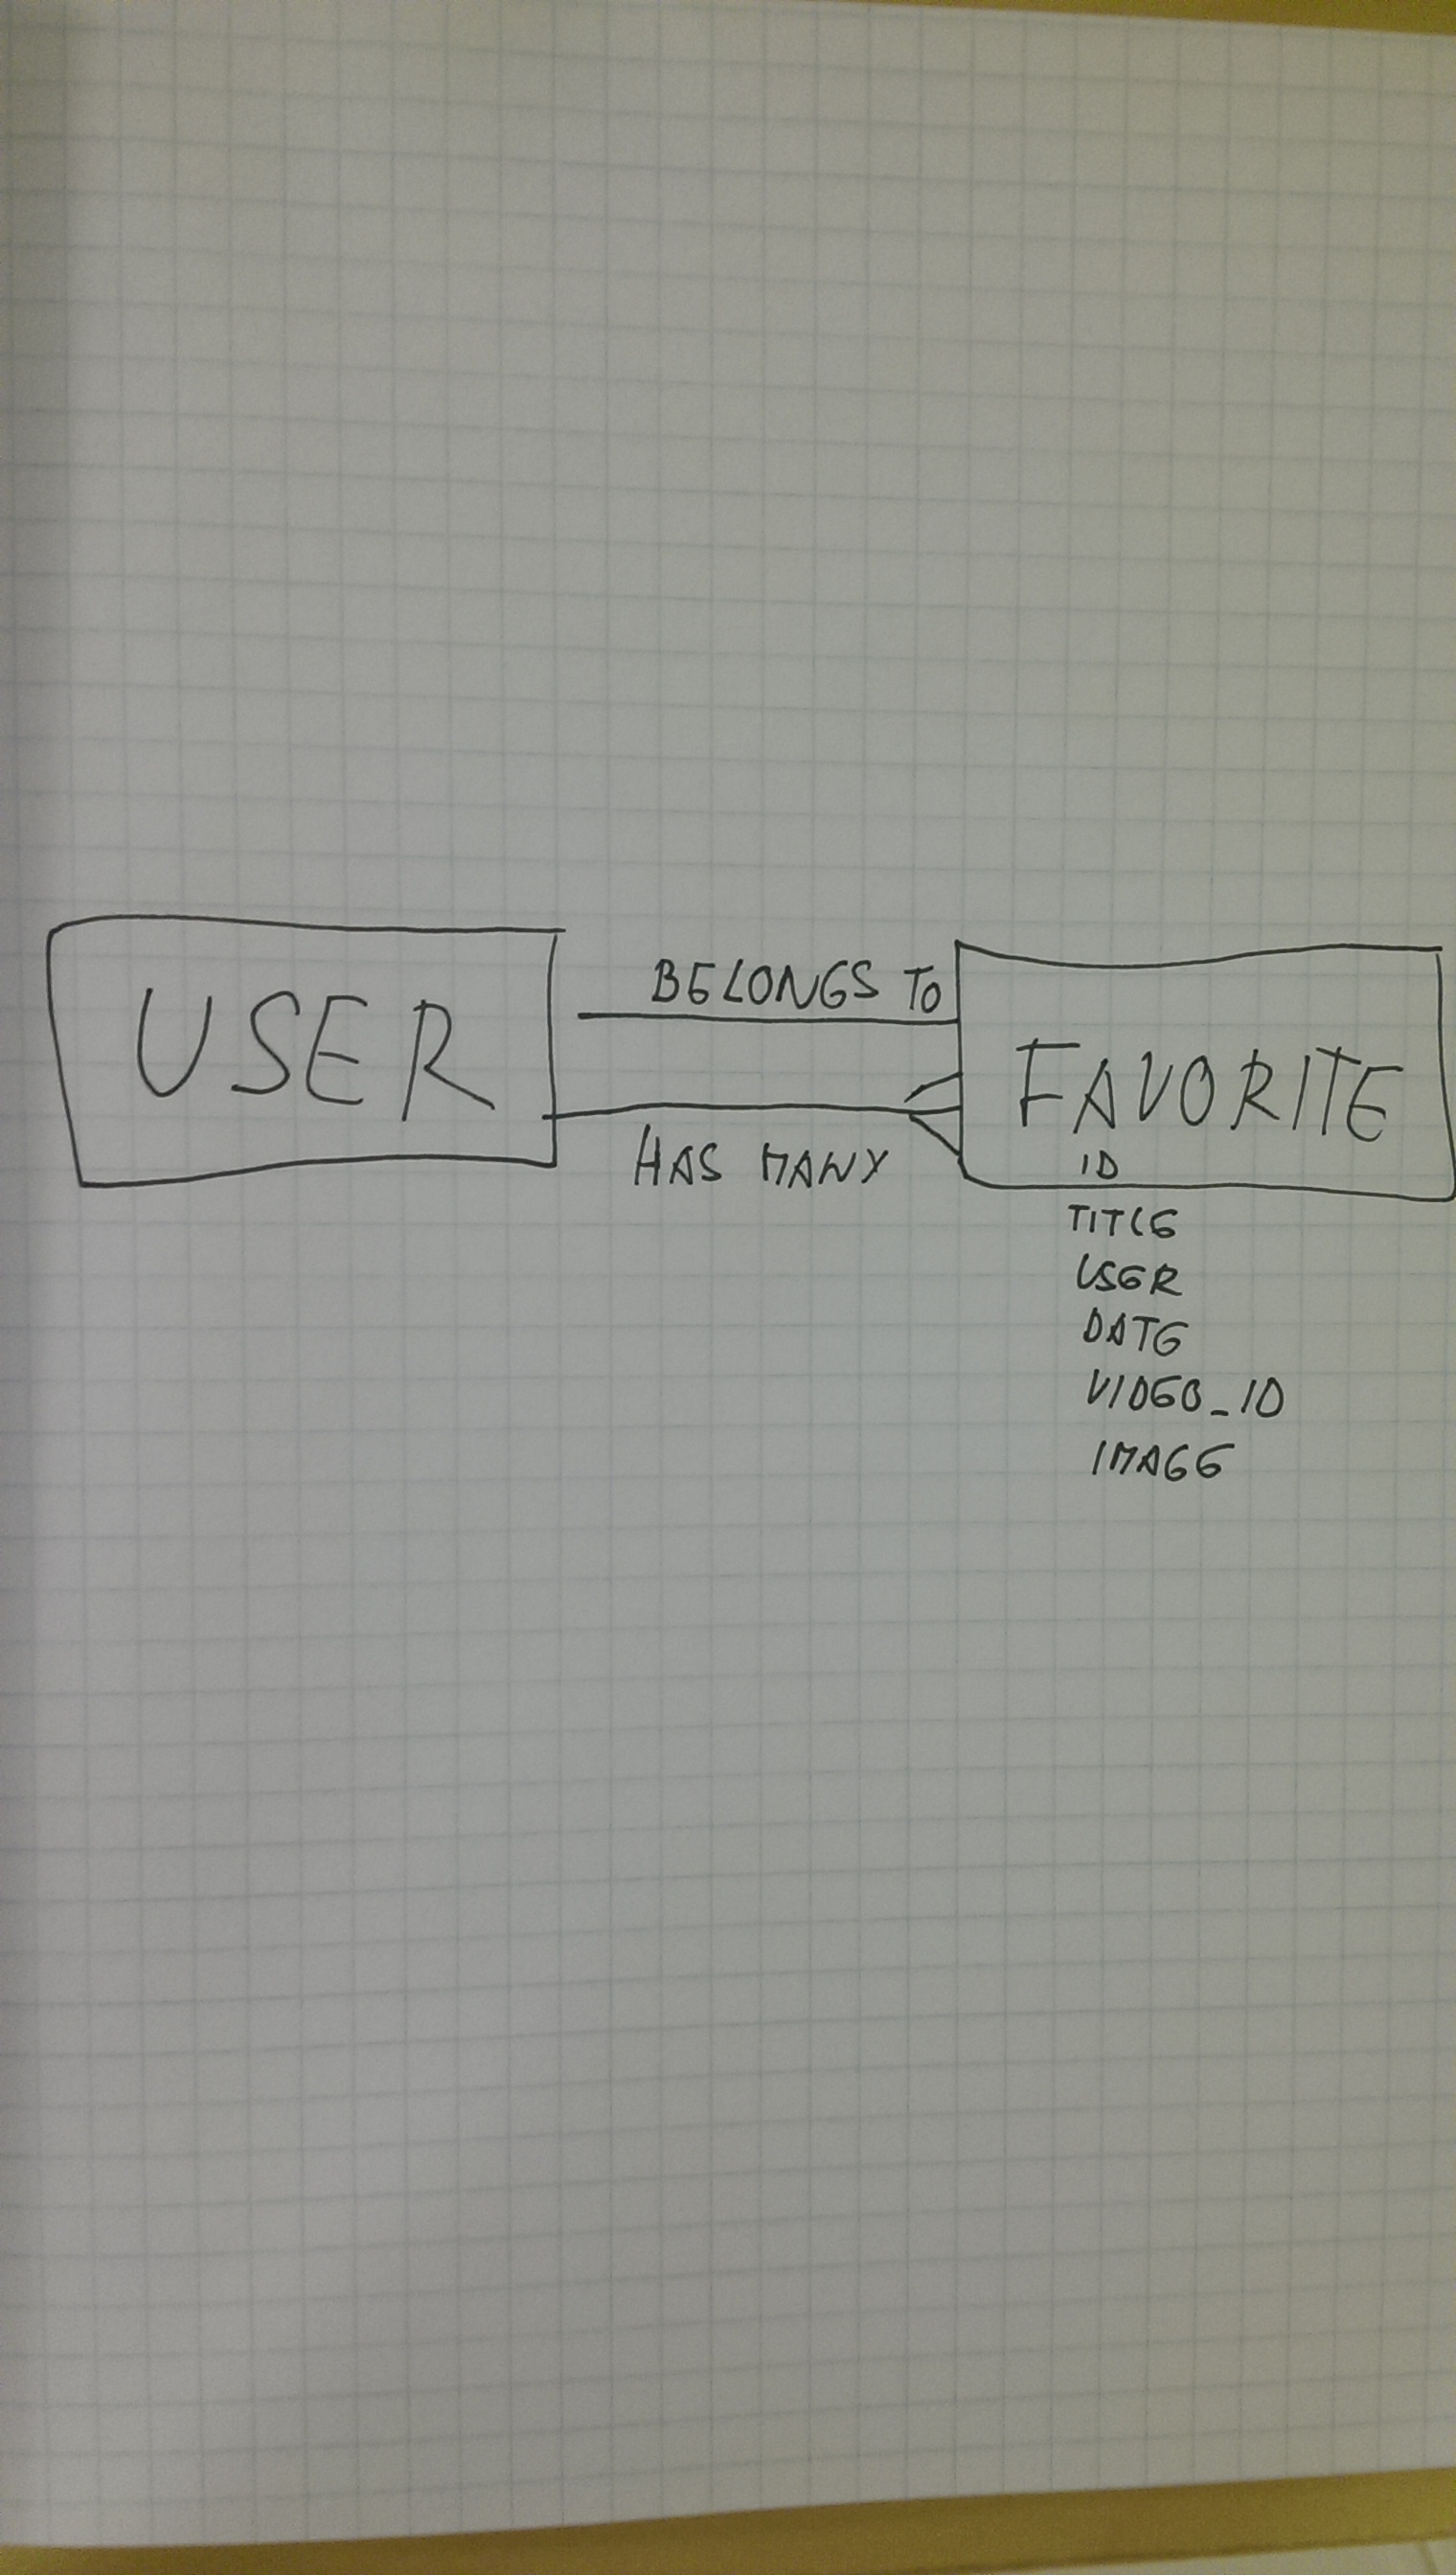 USER
BELONGS TO
HAS MANY
FAVORITE
ID
TITLE
USER
DATE
VIDEO_ID
IMAGE